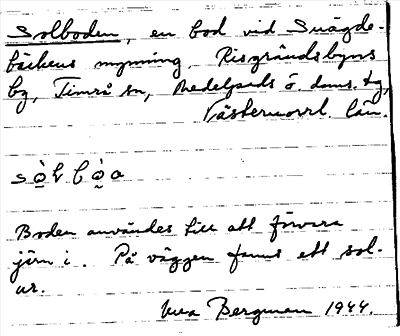 Solboden, en bod vid Snägde-
bäckens mynning, Risgrändsbyns
by, Timrå sn, Medelpads ö. doms. tg,
Västernorrl. län.
Boden användes till att förvara
järn i. På väggen fanns ett sol-
ur.
Vera Bergman 1944.